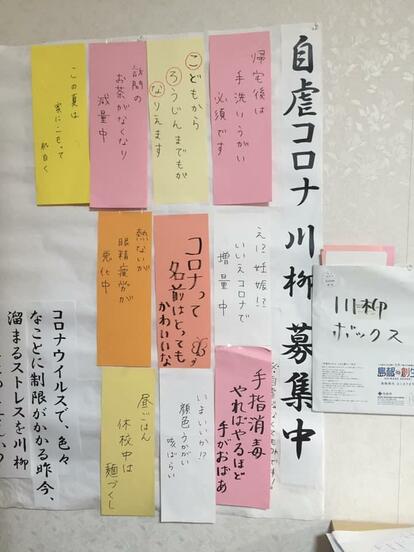 自虐コロナ川柳募集中
帰宅後は
手洗いうがい
必須です
こどもから
ろうじんまでもが
なりえます
訪問の
お茶がなくなり
減量中
この夏は
家にこもって
肌白く
え!?妊娠!?
いいえコロナで
増量中
コロナって
名前はとっても
かわいいな
熱ないが
眼精疲労が
悪化中
手指消毒
やればやるほど
手がおばあ
いまいいか!?
顔色うかがい
咳ばらい
昼ごはん
休校中は
麺づくし
コロナウイルスで、色々
なことに制限がかかる昨今、
溜まるストレスを川柳
川柳
ボックス